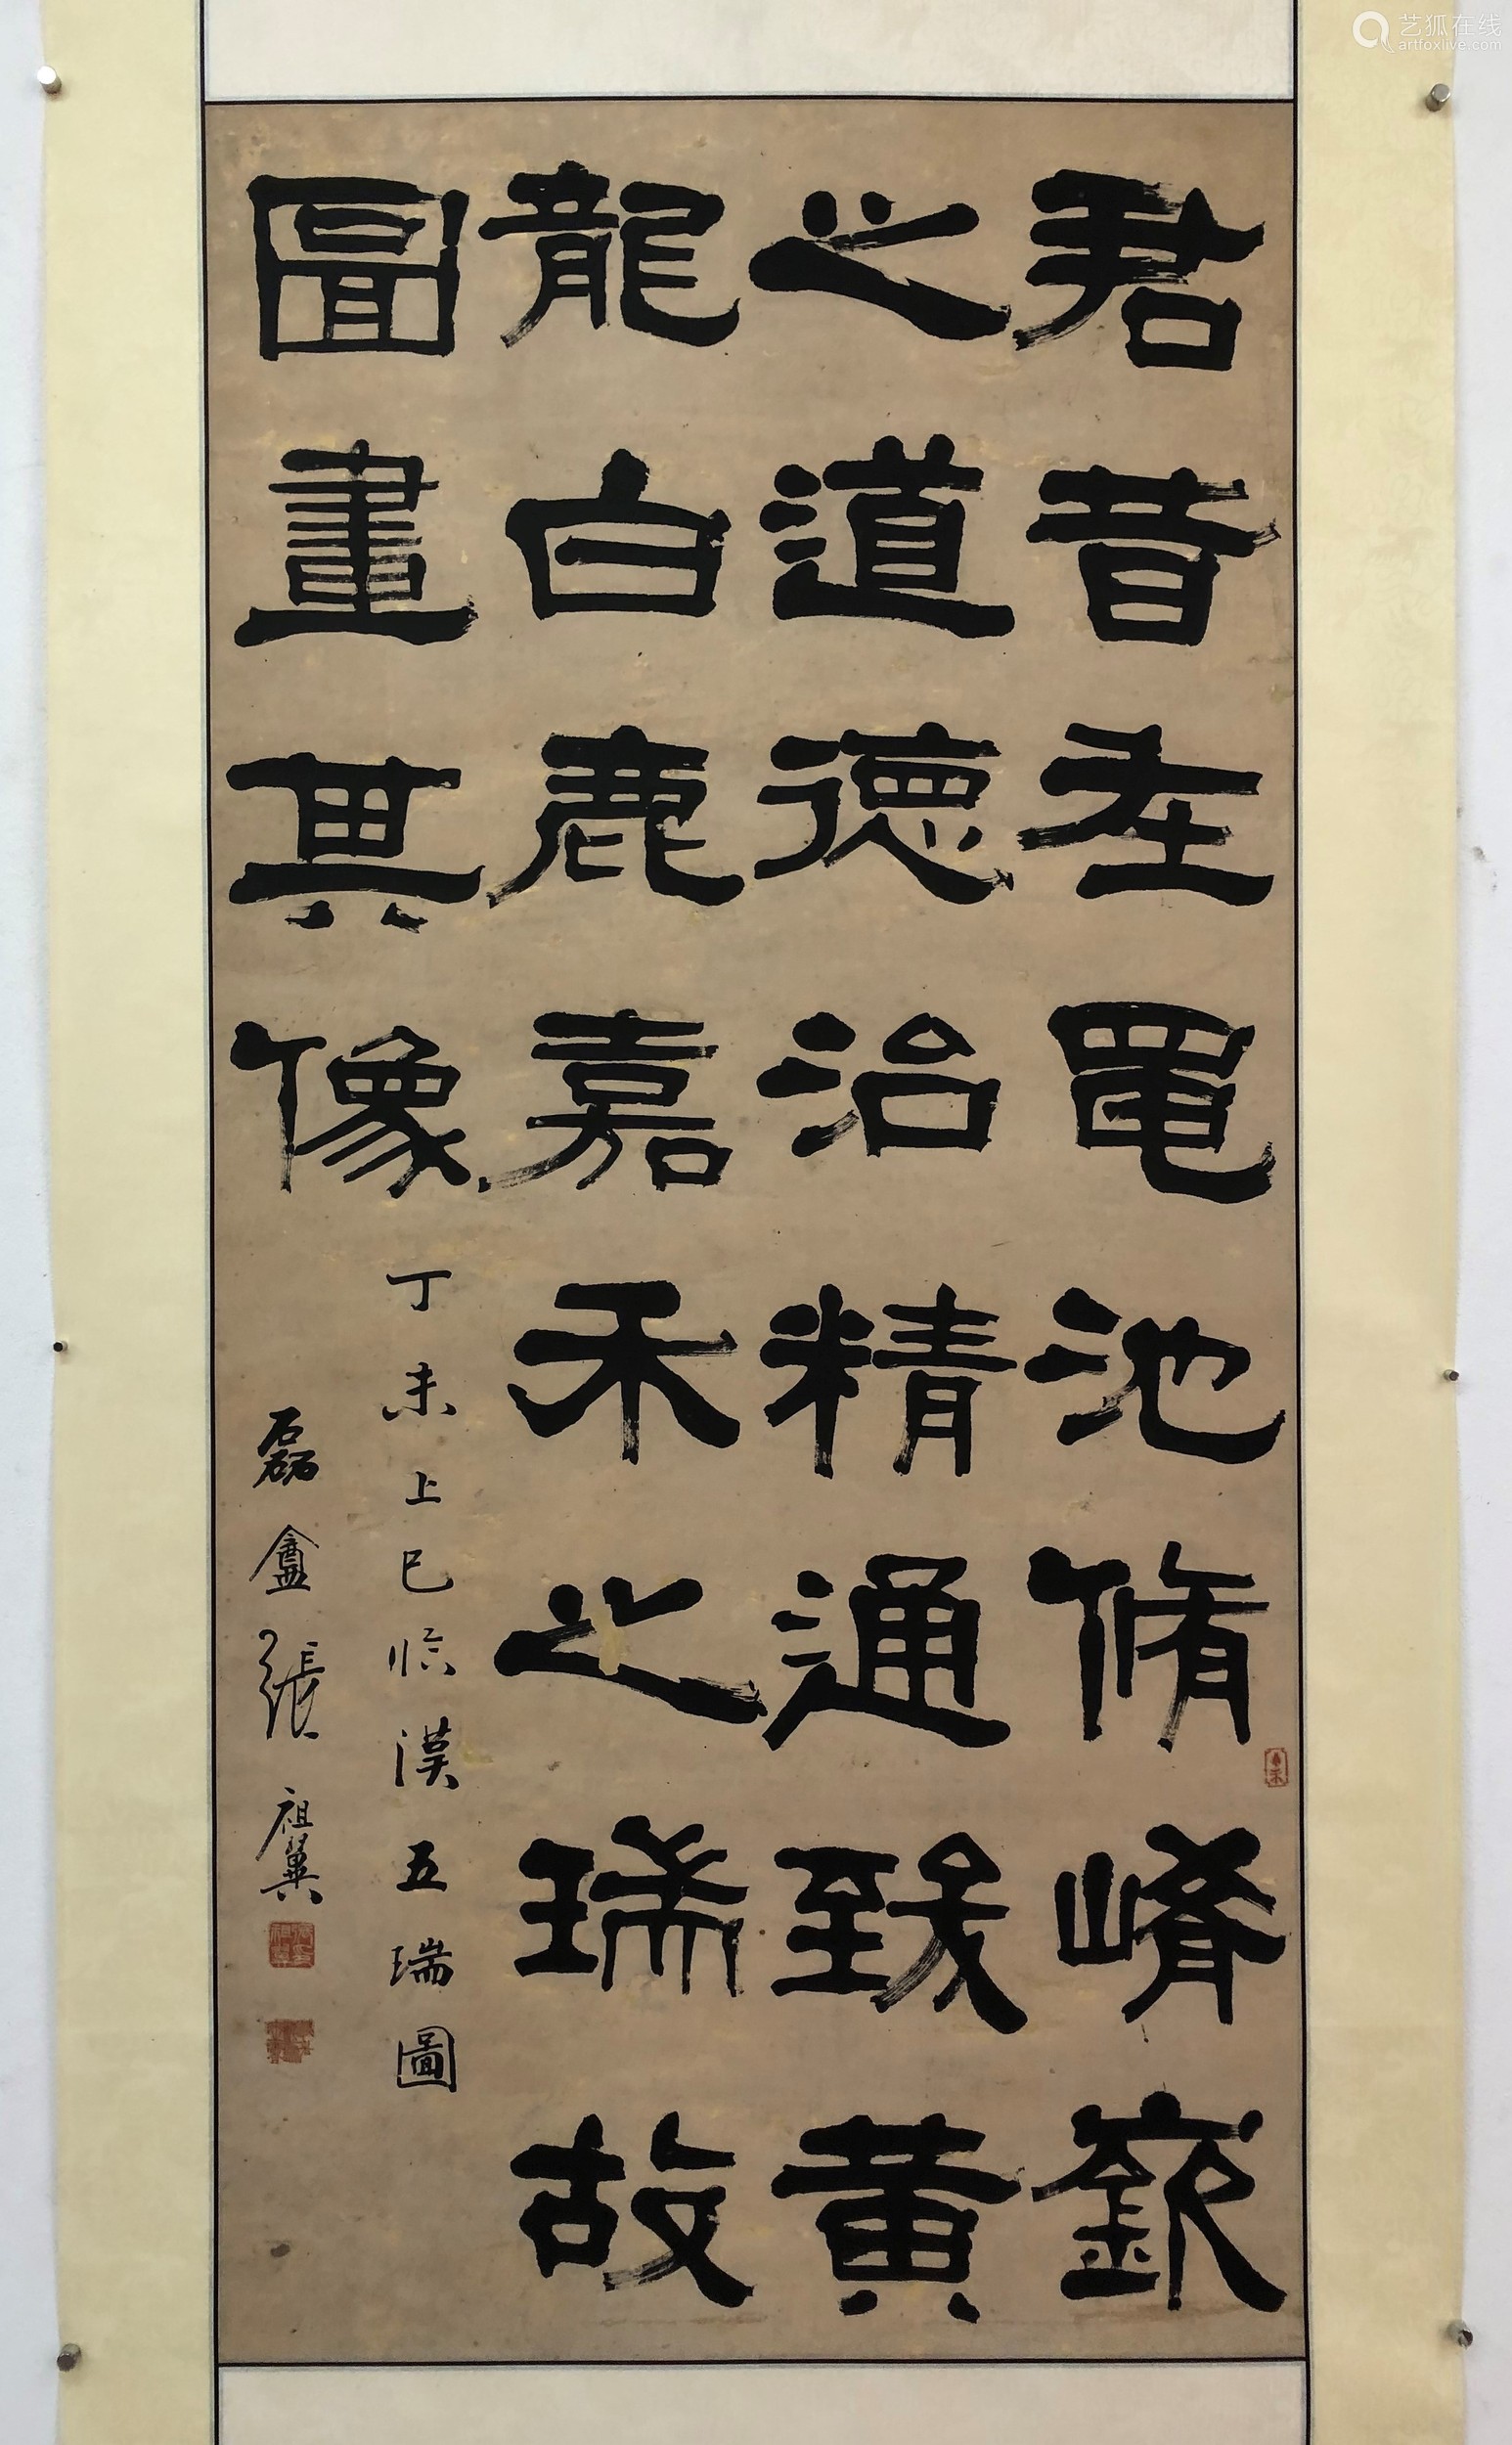 君昔在黽池脩崤嶔
之道德治精通致黃
龍白鹿嘉禾之瑞故
圖畫其像
丁未上巳临漢五瑞圖
磊盦張祖翼
艺狐在线
artfoxlive.com